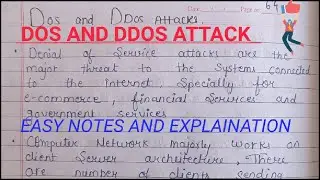 Dos and DDos Attacks.
DOS AND DDOS ATTACK
Denial of Service attacks are the
major threat to the systems connected
to the Internet, Specially for
e-commerce, financial Services and
government services
EASY NOTES AND EXPLAINATION
Computer Network majorly works on
client Server architecture, There
are number of clients sending